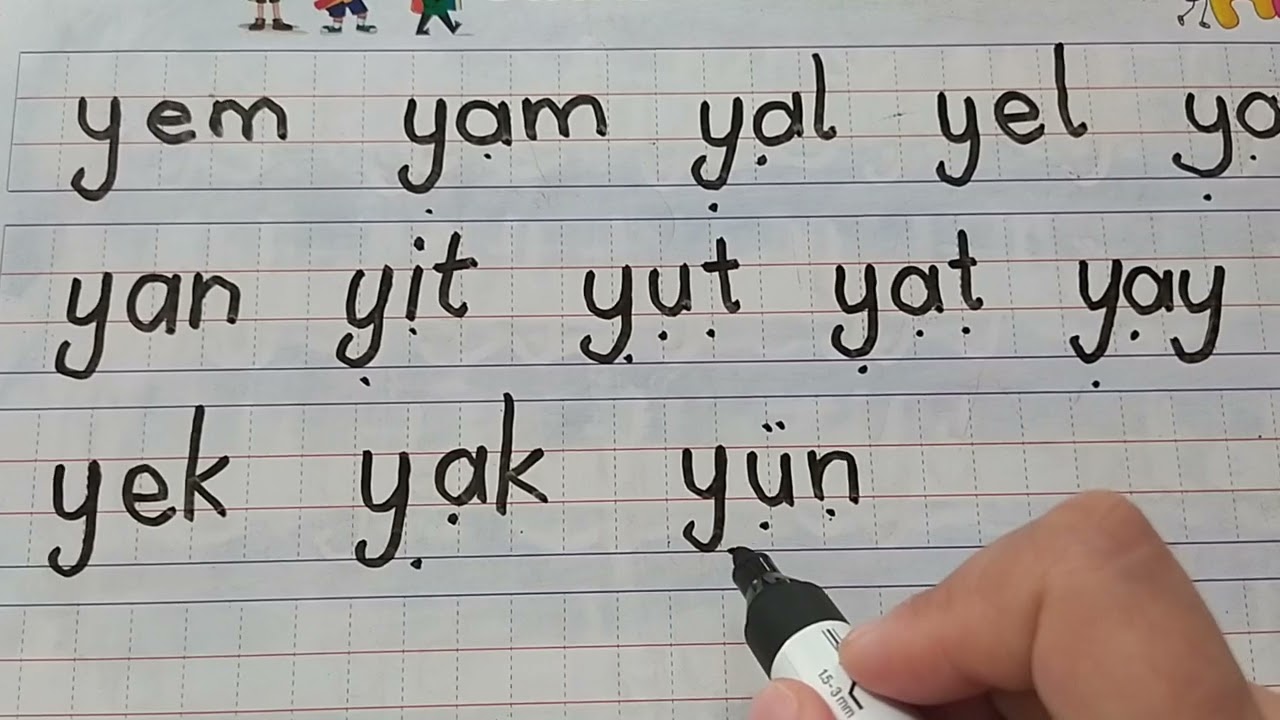 yem yam yal yel
yan yit yut yat yay
yek yak yün
1.5-3 mm